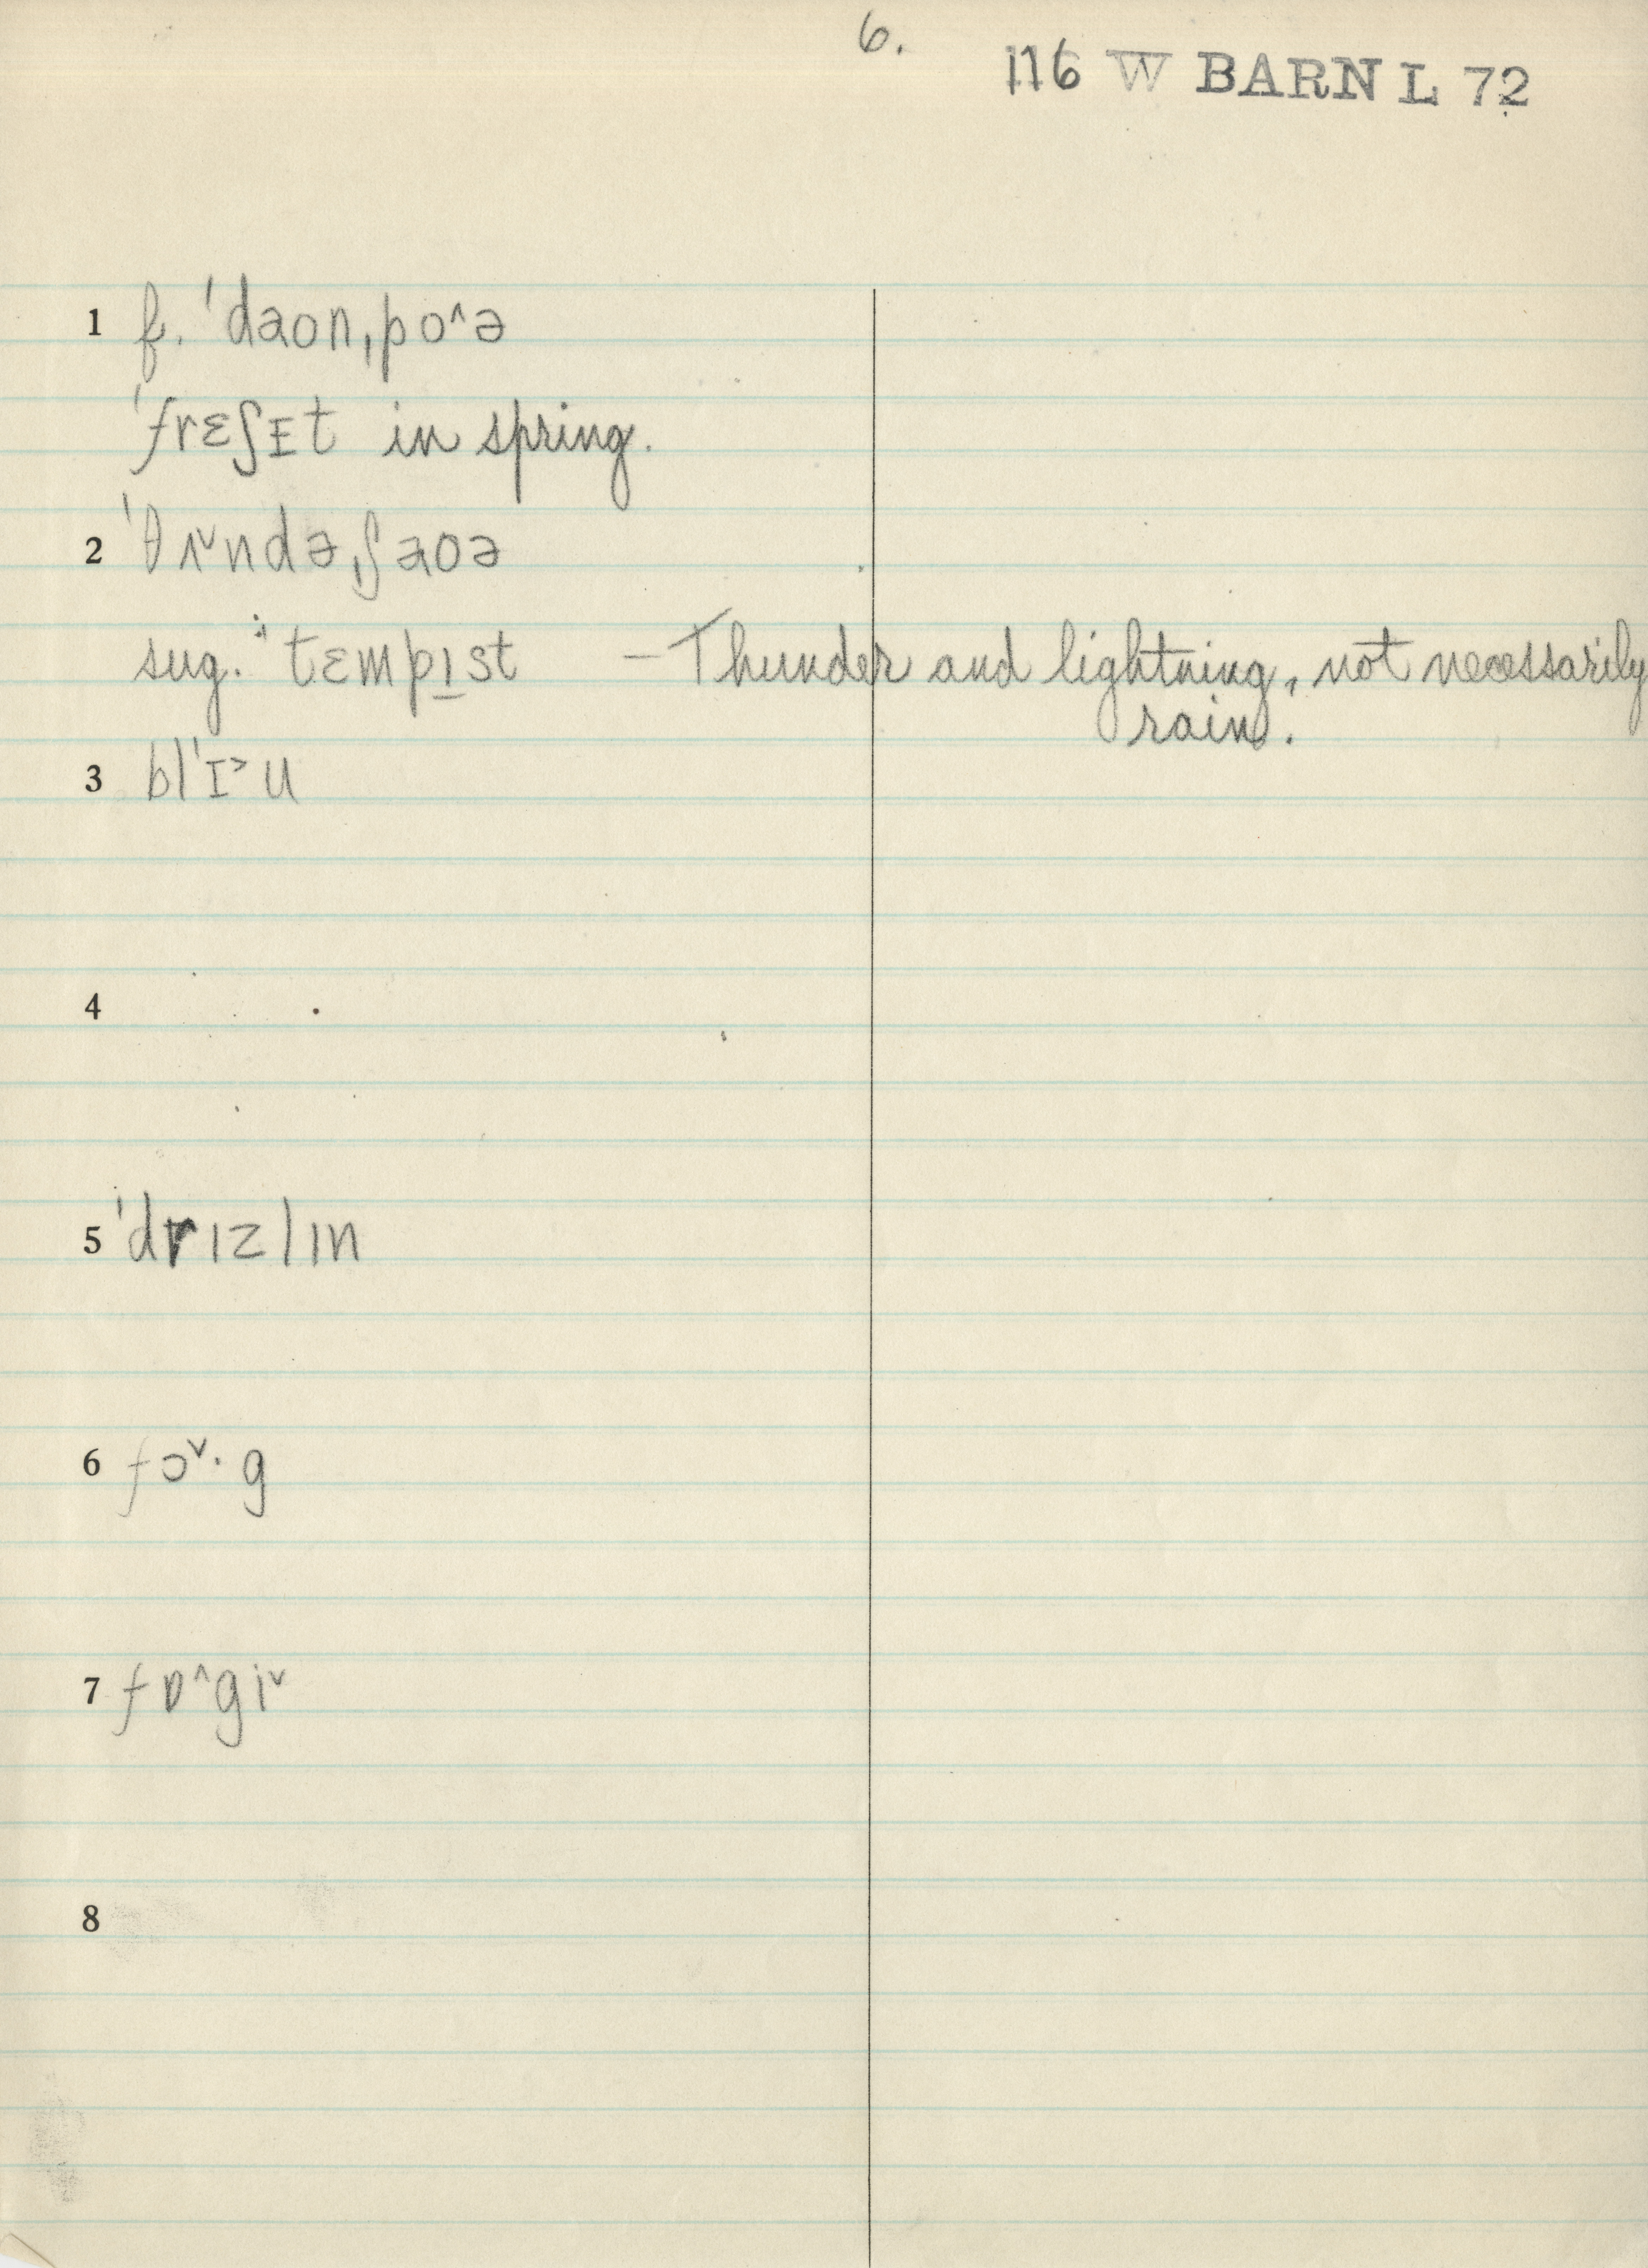 6.
116 W BARN L 72
1 f. ˈdaʊnˌpo^ə
ˈfrɛʃɪt in spring.
2 ˈθʌ˅ndəˌʃaʊə
sug. ˈtɛmpɪ̲st – Thunder and lightning, not necessarily
rain.
3 blˈɪ˃u
4
5 ˈdrɪzlɪn
6 fɔ˅·g
7 fɒ^gi˅
8